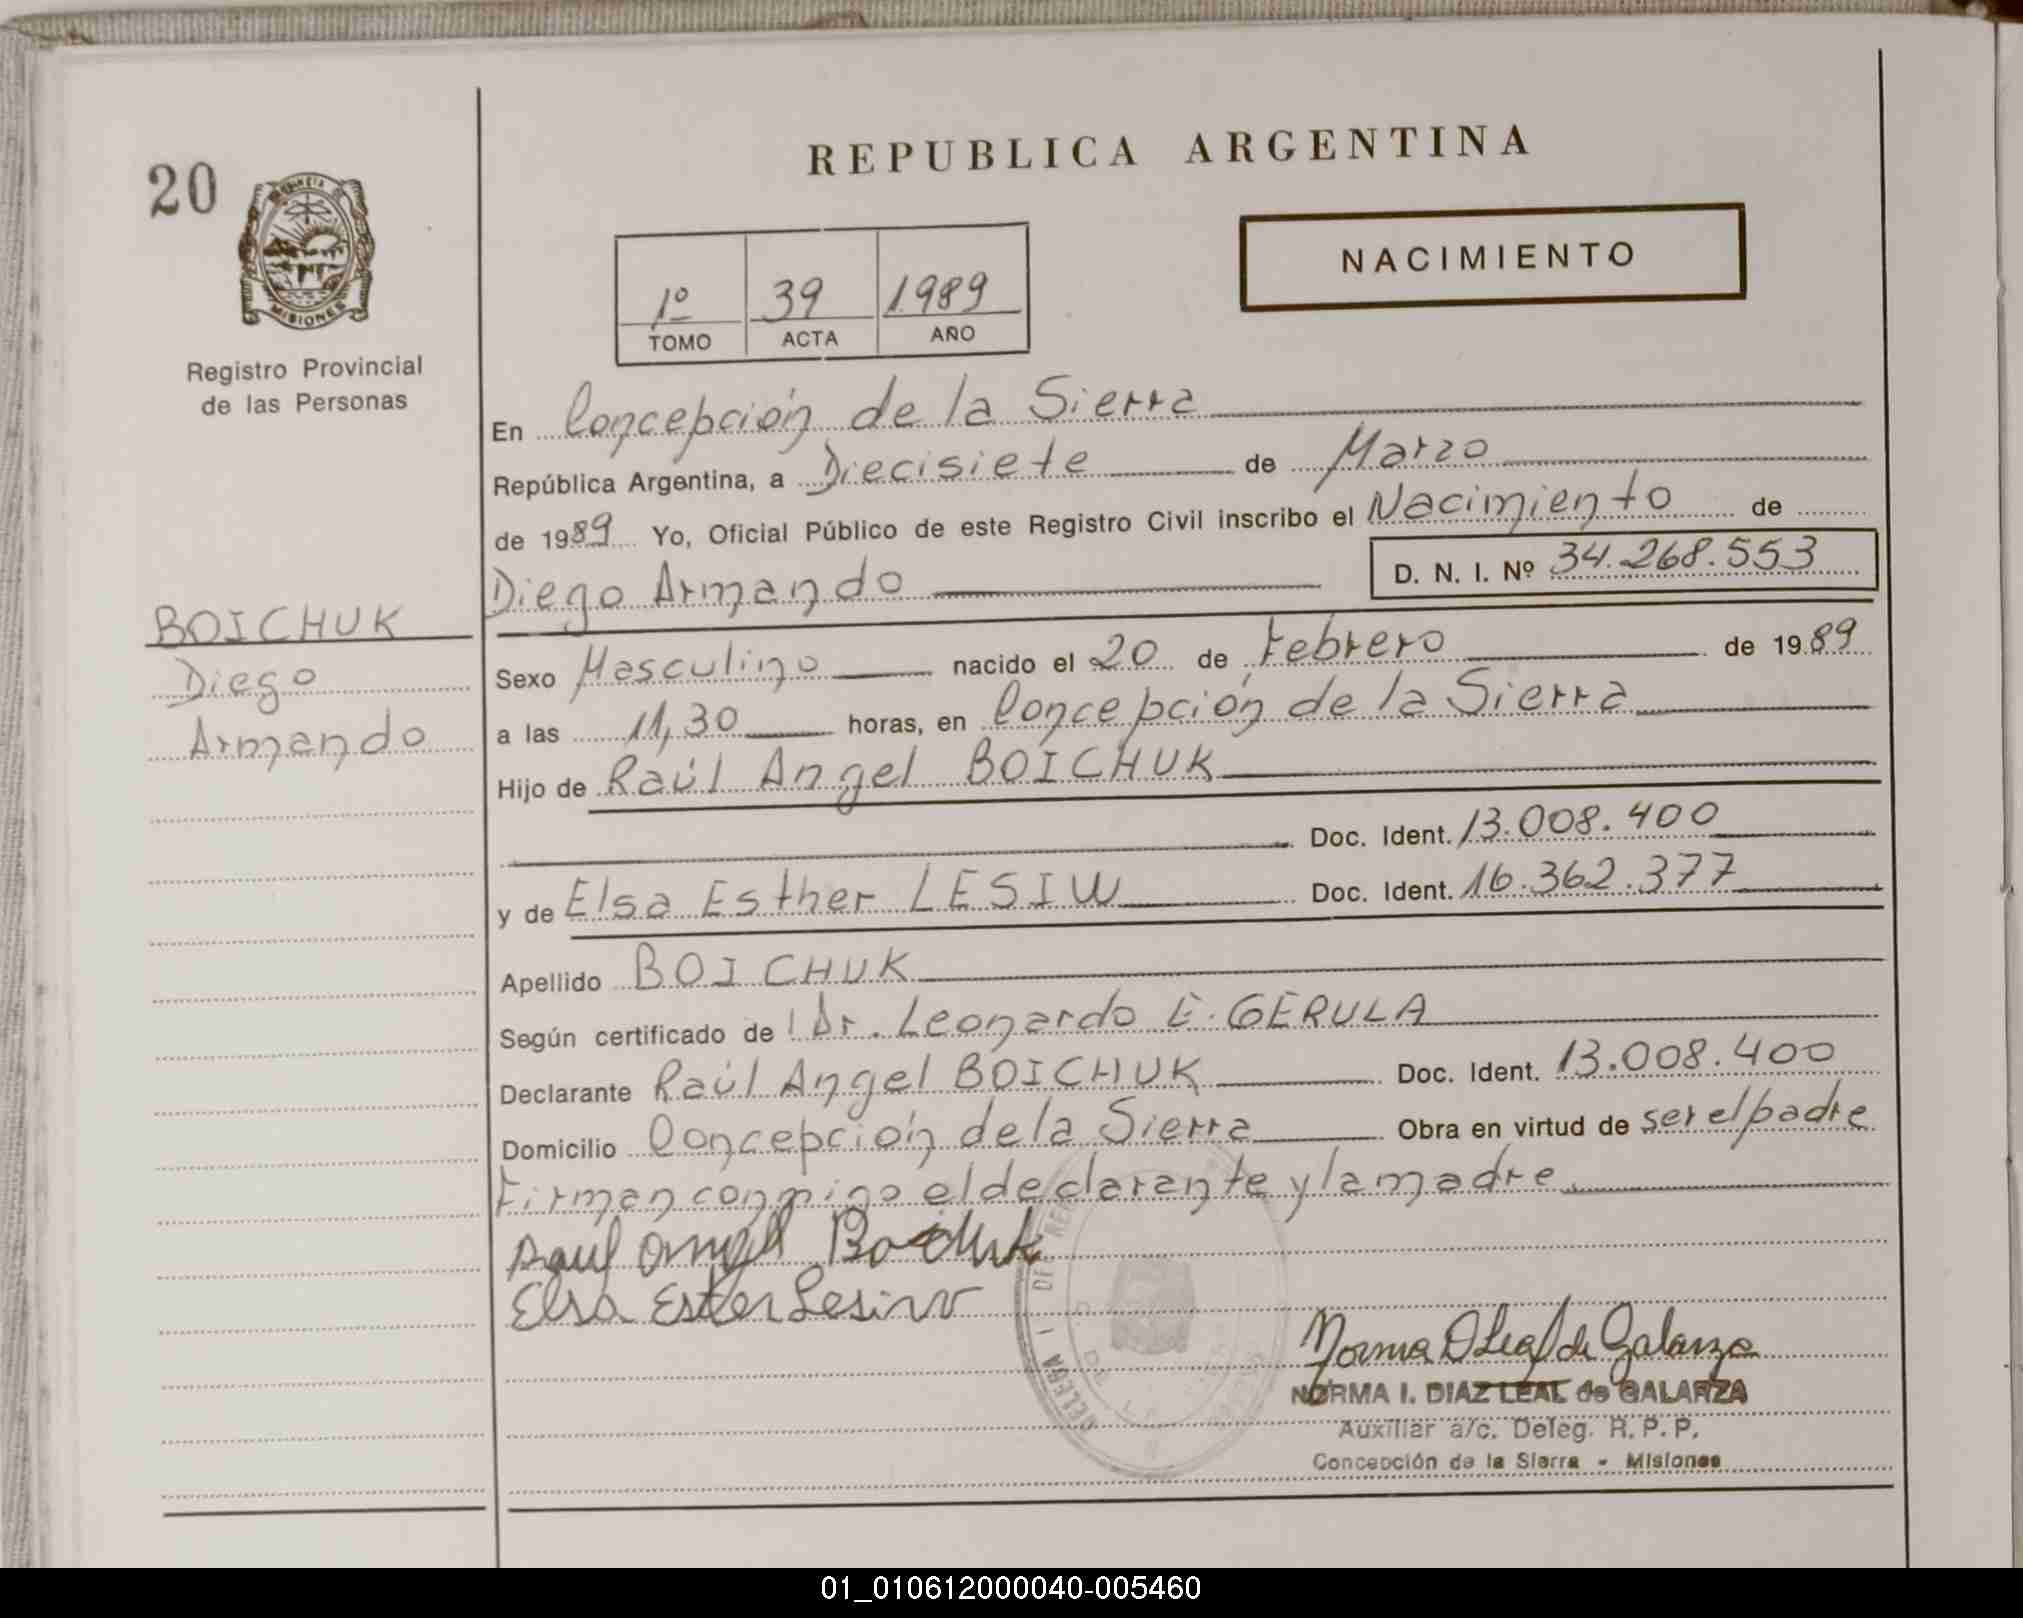 REPUBLICA ARGENTINA
20
PROVINCIA
MISIONES
Registro Provincial
de las Personas
NACIMIENTO
1º 39 1989
TOMO ACTA AÑO
En Concepción de la Sierra
República Argentina, a Diecisiete de Marzo
de 1989 Yo, Oficial Público de este Registro Civil inscribo el Nacimiento de
Diego Armando D. N. I. Nº 34.268.553
BOICHUK
Diego
Armando
Sexo Masculino nacido el 20 de Febrero de 1989
a las 11,30 horas, en Concepción de la Sierra
Hijo de Raúl Angel BOICHUK
Doc. Ident. 13.008.400
y de Elsa Esther LESIW Doc. Ident. 16.362.377
Apellido BOICHUK
Según certificado de Dr. Leonardo E. GERULA
Declarante Raúl Angel BOICHUK Doc. Ident. 13.008.400
Domicilio Concepción de la Sierra Obra en virtud de ser el padre
Firman conmigo el declarante y la madre.
Raul Angel Boichuk
Elsa Ester Lesiw
Norma D Leal de Galarza
NORMA I. DIAZ LEAL de GALARZA
Auxiliar a/c. Deleg. R. P. P.
Concepción de la Sierra - Misiones
01_010612000040-005460